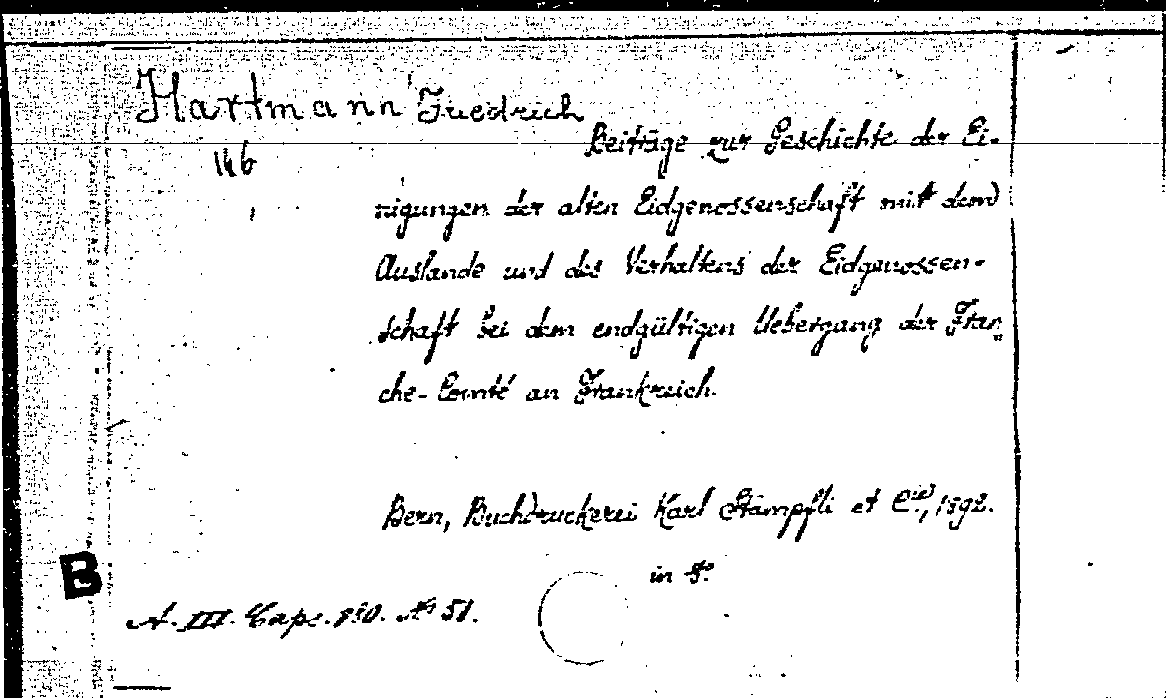 Hartmann Friedrich
Beiträge zur Geschichte der Ei-
nigungen der alten Eidgenossenschaft mit dem
Auslande und des Verhaltens der Eidgenossen-
schaft bei dem endgültigen Uebergang der Fran
che-Comté an Frankreich.
Bern, Buchdruckerei Karl Stämpfli et Cie, 1892.
in 8°.
B
A. III. Caps. 850. No 51.